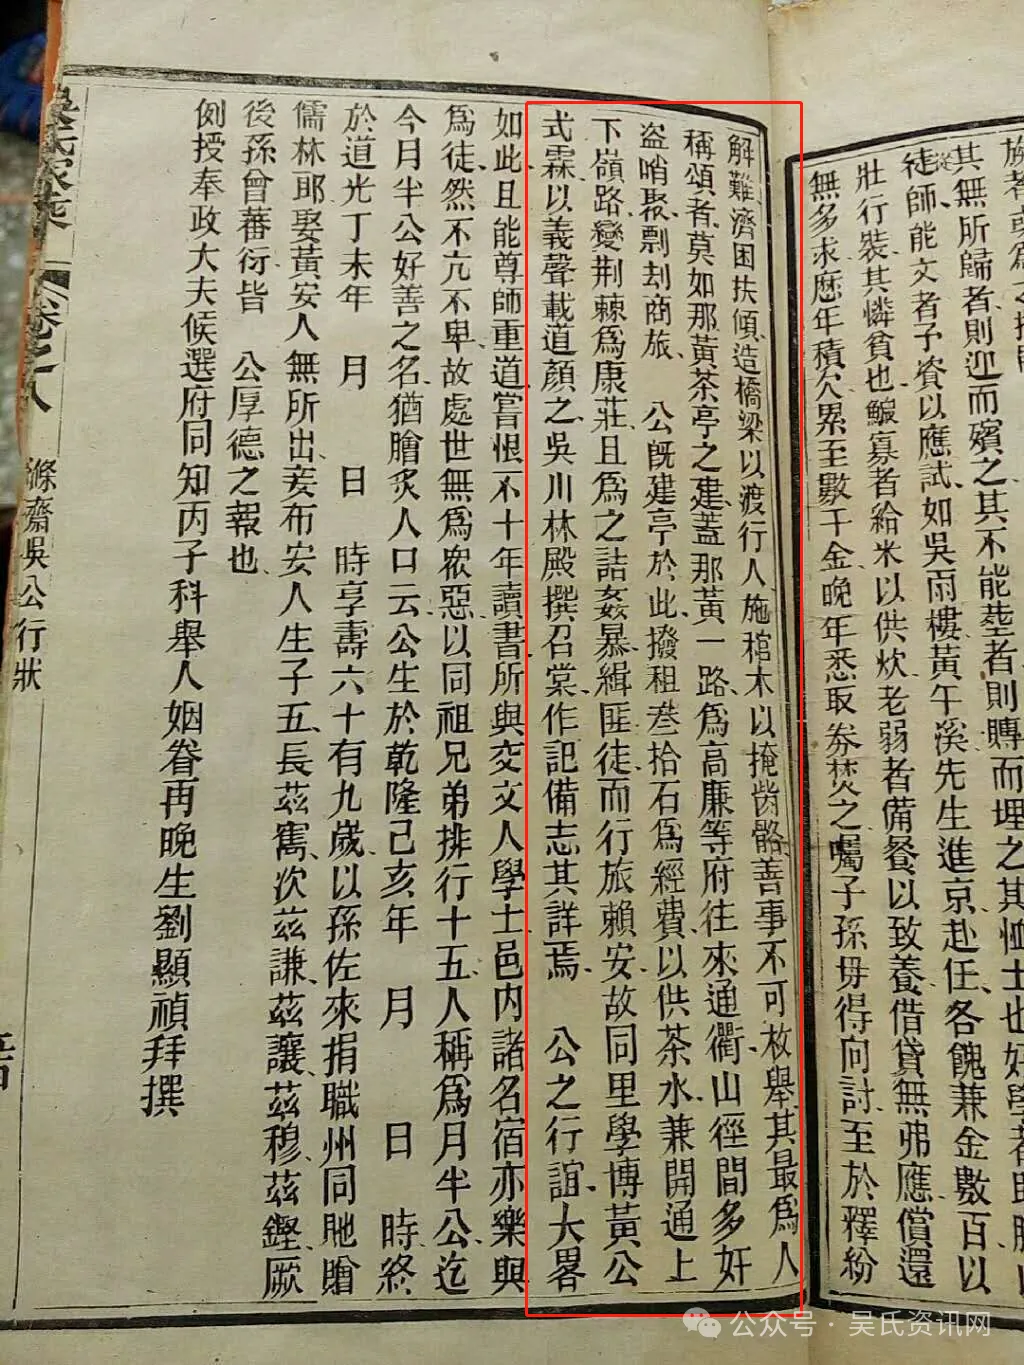 其無所歸者則迎而殯之其不能塟者則賻而埋之其恤士也好學者
徒師能文者予資以應試如吳雨樓黃午溪先生進京赴任各餽兼金數百以
壯行裝其憐貧也鰥寡者給米以供炊老弱者備餐以致養借貸無弗應償還
無多求歷年積欠累至數千金晚年悉取券焚之囑子孫毋得向討至於釋紛
解難濟困扶傾造橋梁以渡行人施棺木以掩胔骼善事不可枚舉其最爲人
稱頌者莫如那黃茶亭之建蓋那黃一路爲高廉等府往來通衢山徑間多奸
盜哨聚剽刦商旅　公旣建亭於此撥租叁拾石爲經費以供茶水兼開通上
下嶺路變荆棘爲康莊且爲之詰姦暴緝匪徒而行旅賴安故同里學博黃公
式霖以義聲載道顏之吳川林殿撰召棠作記備志其詳焉　公之行誼大畧
如此且能尊師重道嘗恨不十年讀書所與交文人學士邑內諸名宿亦樂與
爲徒然不亢不卑故處世無爲衆惡以同祖兄弟排行十五人稱爲月半公迄
今月半公好善之名猶膾炙人口云公生於乾隆己亥年　月　日　時終
於道光丁未年　月　日　時享壽六十有九歲以孫佐來捐職州同貤贈
儒林郎娶黃安人無所出妾布安人生子五長茲雋次茲謙茲讓茲穆茲鏗厥
後孫曾蕃衍皆　公厚德之報也
例授奉政大夫候選府同知丙子科舉人姻眷再晚生劉顯禎拜撰
吳氏家乘
卷之八
滌齋吳公行狀
公众号·吴氏资讯网